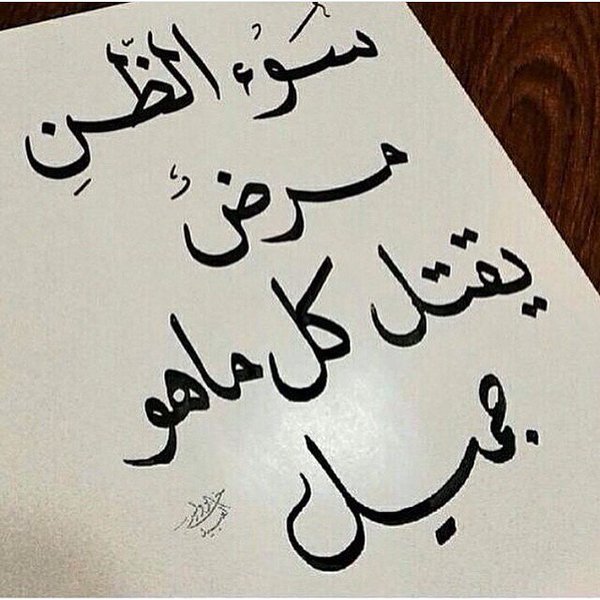 سَوْء الظّنِ
مرضٌ
يقتل كل ماهو
جميل